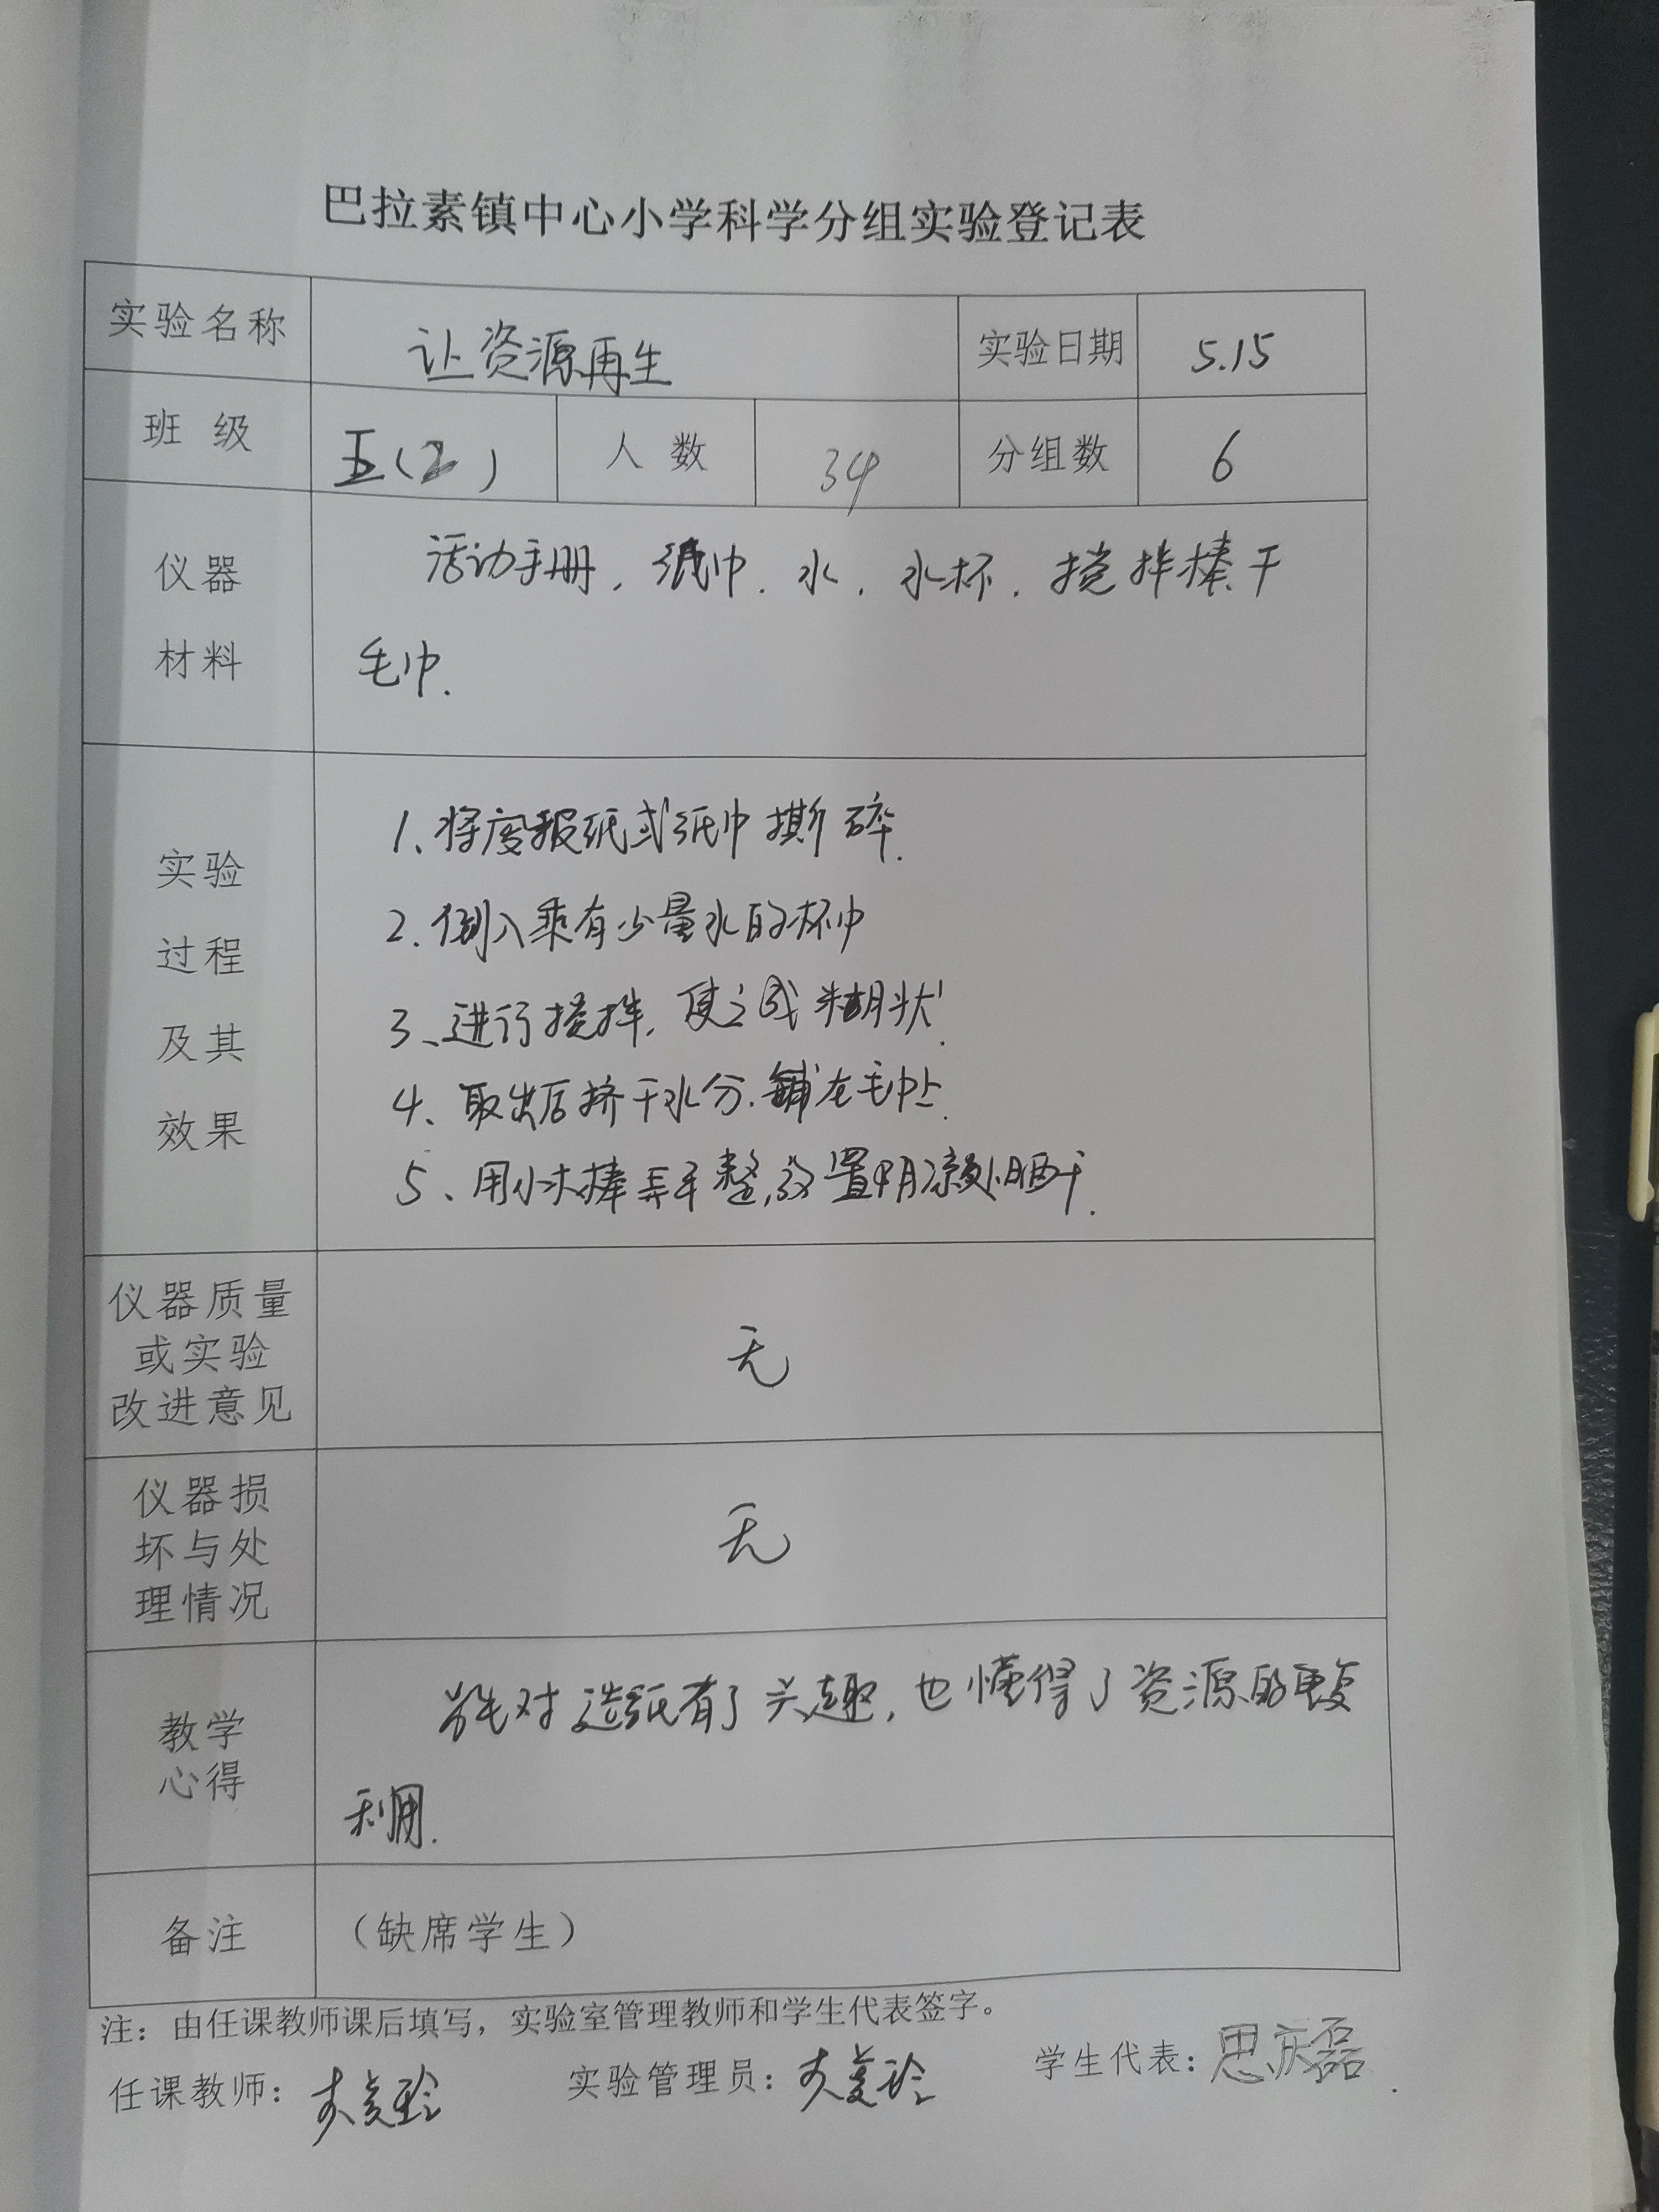 巴拉素镇中心小学科学分组实验登记表
实验名称 让资源再生 实验日期 5.15
班 级 五(2) 人 数 34 分组数 6
仪器 活动手册.纸巾.水.水杯.搅拌棒.干
材料 毛巾.
1、将废报纸或纸巾撕碎.
实验
2.倒入乘有少量水的杯中
过程
3、进行搅拌,使之成糊状.
及其
4、取出后挤干水分.铺在毛巾上.
效果
5、用小木棒弄平整,放置阴凉处晒干.
仪器质量
或实验 无
改进意见
仪器损
坏与处 无
理情况
学生对造纸有了兴趣,也懂得了资源的重复
教学
心得
利用.
备注 (缺席学生)
注:由任课教师课后填写,实验室管理教师和学生代表签字。
任课教师: 实验管理员: 学生代表:思庆磊.